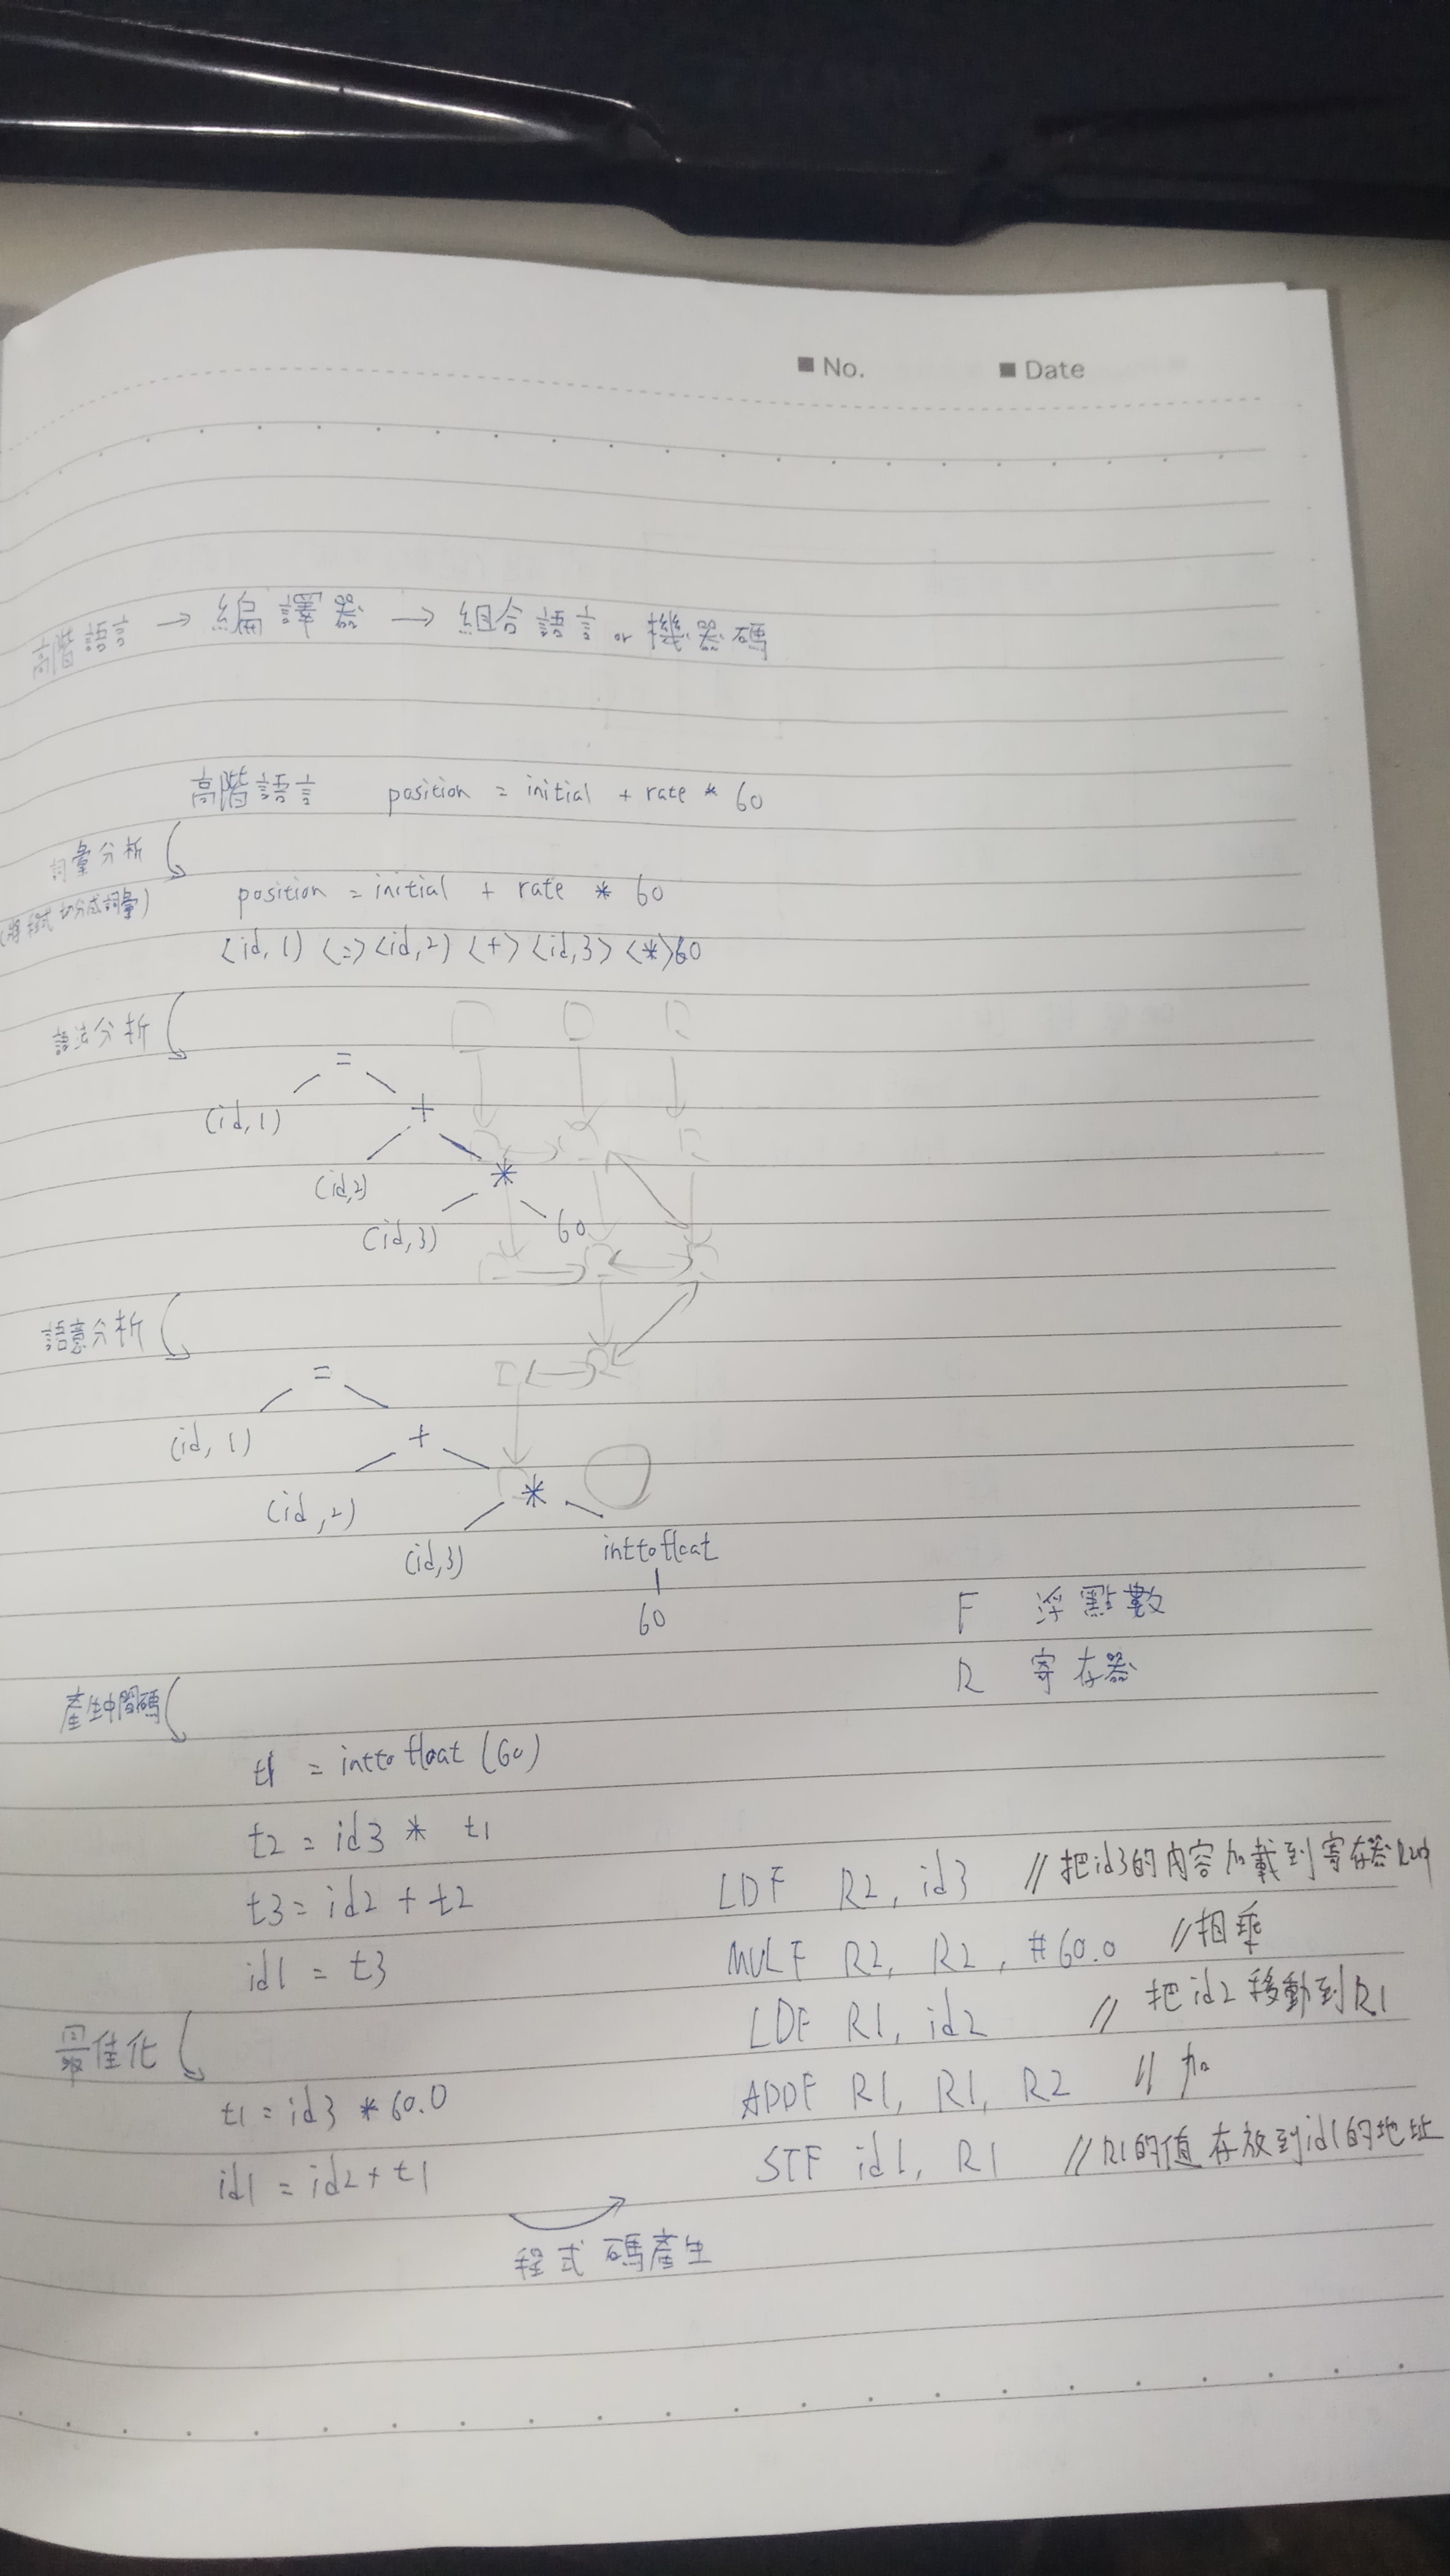 ■ No. ■ Date
高階語言 → 編譯器 → 組合語言 or 機器碼
高階語言 position = initial + rate * 60
詞彙分析
(將程式切分成詞彙)
position = initial + rate * 60
<id, 1) <=> <id, 2) <+> <id, 3> <*> 60
語法分析
=
(id, 1) +
(id,2) *
(id, 3) 60
語意分析
=
(id, 1) +
(id, 2) *
(id,3) inttofloat
60
F 浮點數
R 寄存器
產生中間碼
t1 = inttofloat (60)
t2 = id3 * t1
t3 = id2 + t2
id1 = t3
最佳化
t1 = id3 * 60.0
id1 = id2 + t1
程式碼產生
LDF R2, id3 // 把id3的內容加載到寄存器R2中
MULF R2, R2, #60.0 // 相乘
LDF R1, id2 // 把id2移動到R1
ADDF R1, R1, R2 // 加
STF id1, R1 // R1的值存放到id1的地址